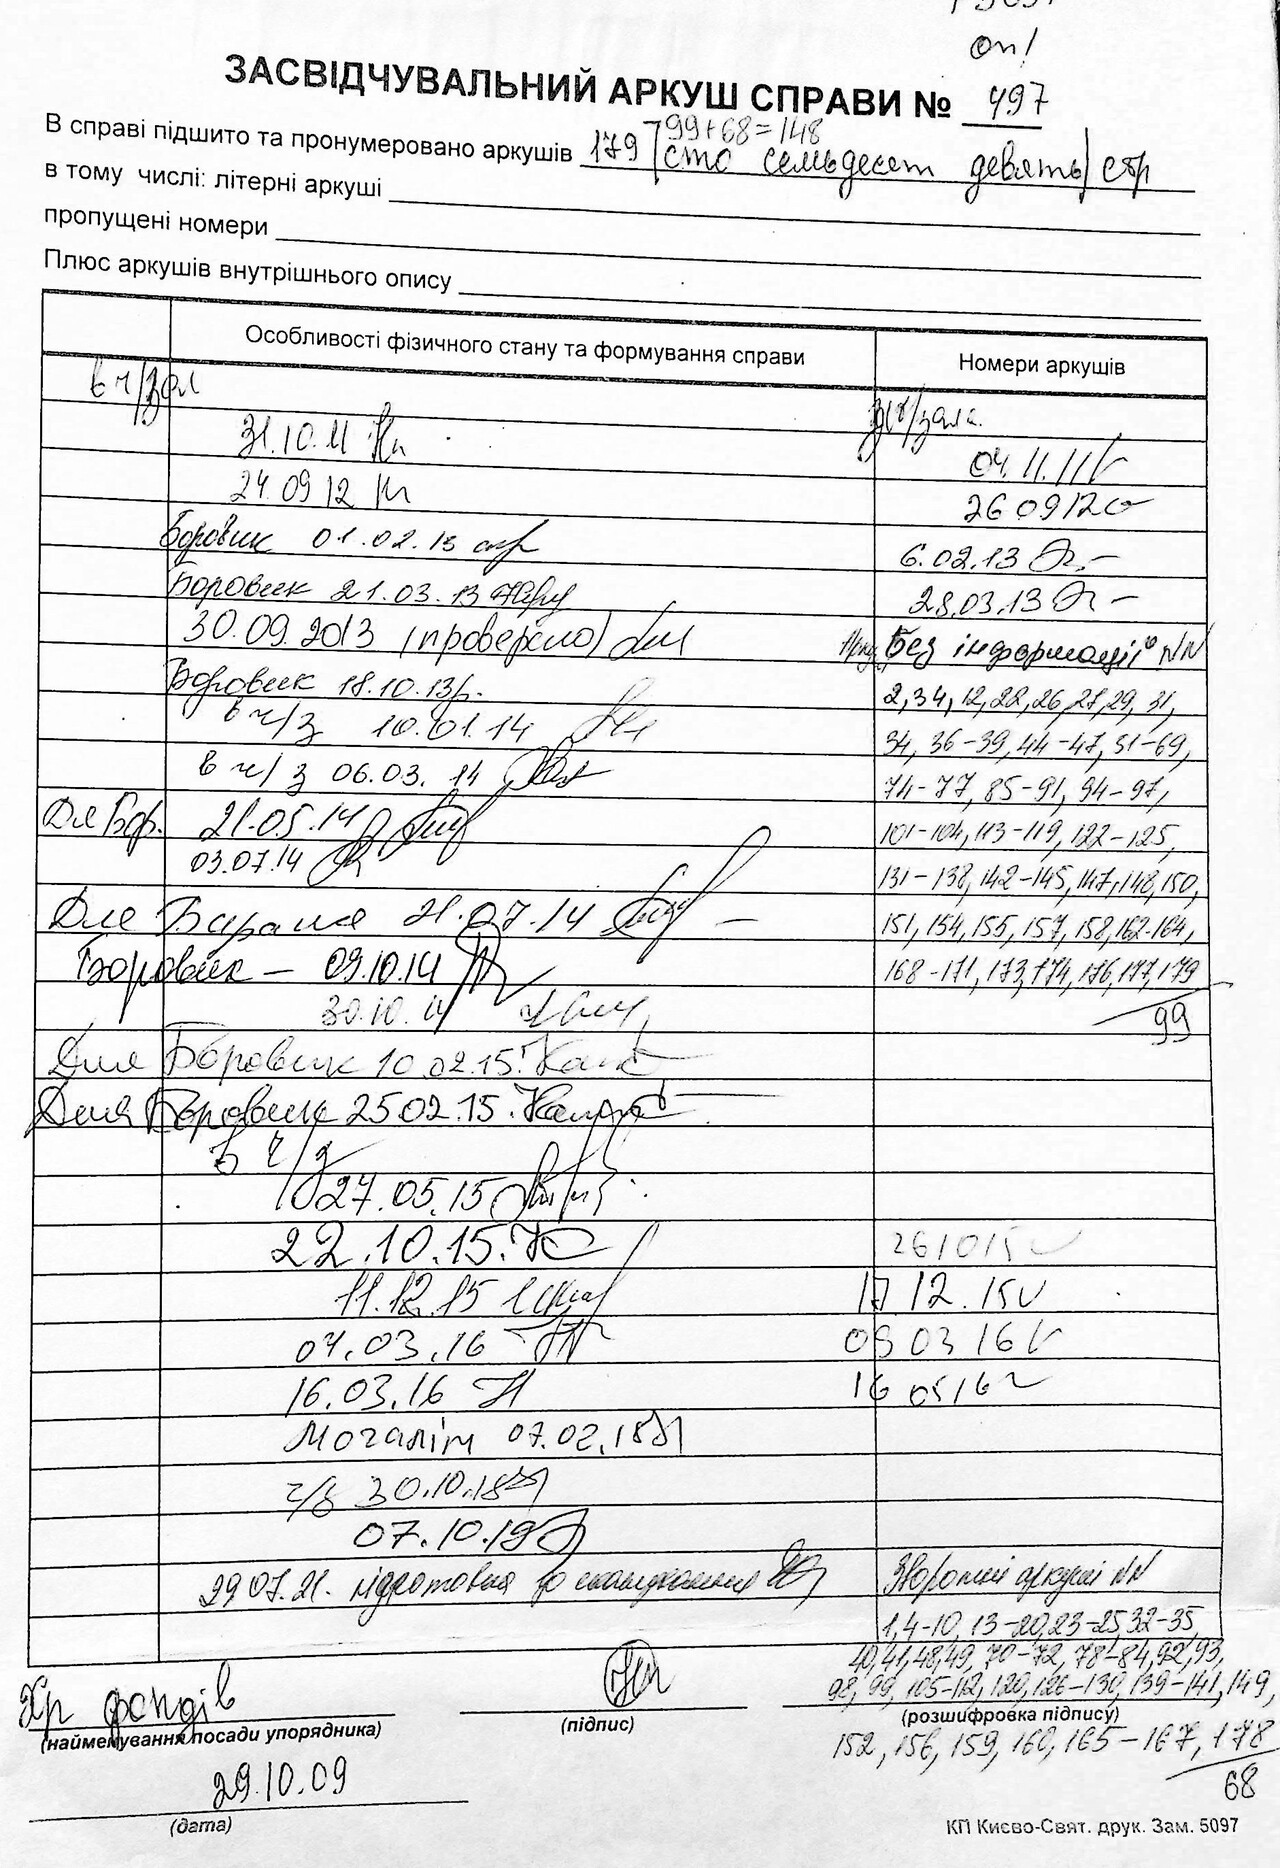 оп 1
ЗАСВІДЧУВАЛЬНИЙ АРКУШ СПРАВИ № 497
99+68=148
В справі підшито та пронумеровано аркушів 179 (сто семьдесят девять) стр
в тому числі: літерні аркуші
пропущені номери
Плюс аркушів внутрішнього опису
Особливості фізичного стану та формування справи Номери аркушів
в ч/зал
з ч/зала
31.10.11
04.11.11
24.09 12
26 09 12
Боровик 01.02.13
6.02.13
Боровик 21.03.13
28.03.13
30.09.2013 (проверено)
Без інформації NN
Боровик 18.10.13р.
2, 34, 12, 22, 26, 27, 29, 31,
в ч/з 10.01.14
34, 36-39, 44-47, 51-69,
в ч/з 06.03.14
74-77, 85-91, 94-97,
Для Бор. 21.05.14
101-104, 113-119, 122-125,
03.07.14
131-138, 142-145, 147, 148, 150,
Для 21.07.14
151, 154, 155, 157, 158, 162-164,
Боровик - 09.10.14
168-171, 173, 174, 176, 177, 179
30.10.14
99
Для Боровик 10.02.15.
Для Боровик 25.02.15.
В ч/з
27.05.15
22.10.15.
26 10 15
11.12.15
17.12.15
04.03.16
09 03 16
16.03.16
16 05 16
Могалім 07.02.18
ч/з 30.10.18
07.10.19
29.07.21. підготовка до сканування
Зворотні аркуші NN
1, 4-10, 13-20, 23-25, 32-35
40, 41, 48, 49, 70-72, 78-84, 92, 93,
98, 99, 105-112, 120, 126-130, 139-141, 149,
Хр фондів
(найменування посади упорядника) (підпис) (розшифровка підпису)
152, 156, 159, 160, 165-167, 178
68
29.10.09
(дата)
КП Києво-Свят. друк. Зам. 5097